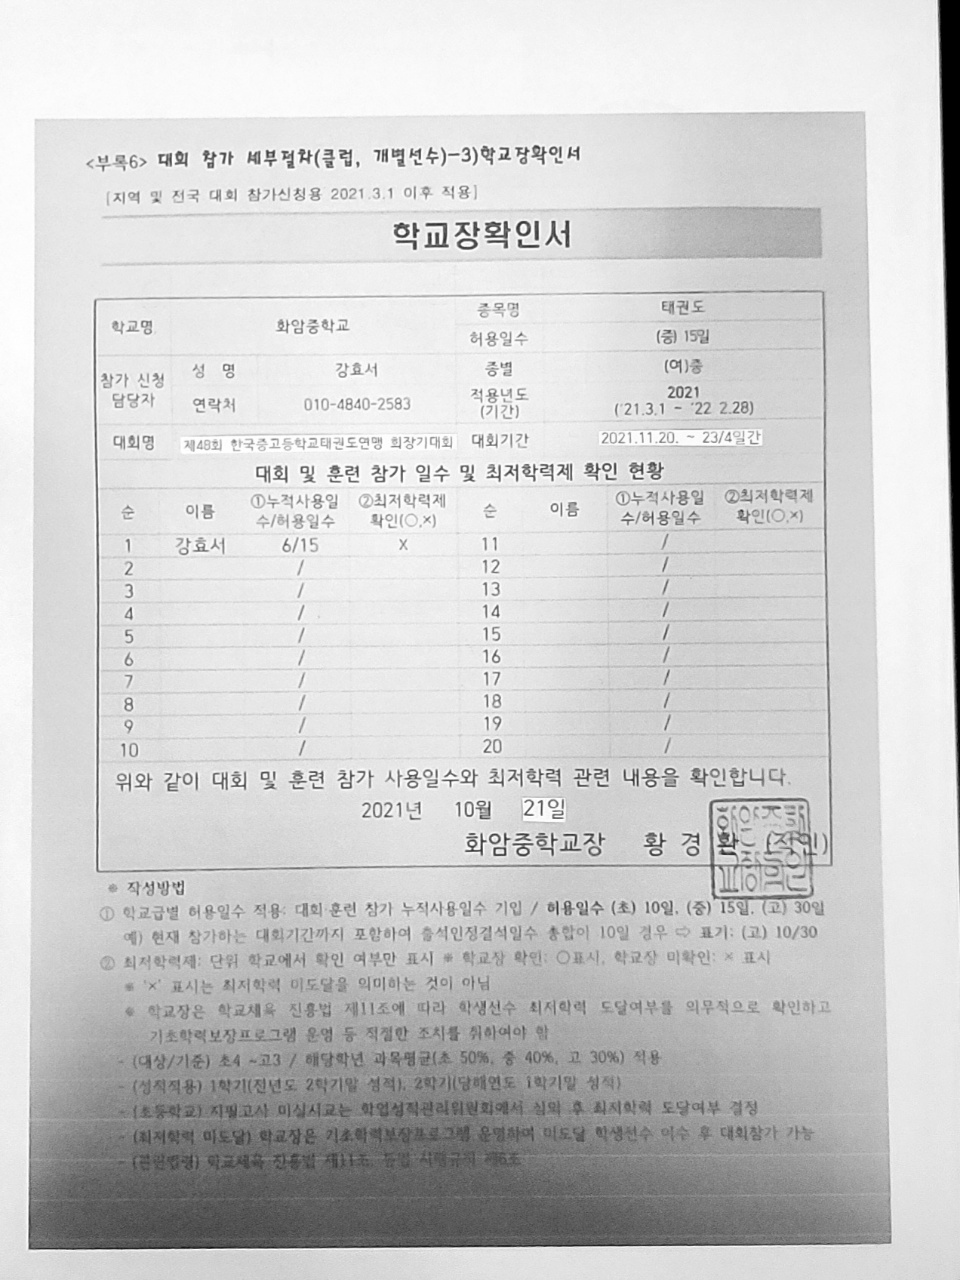 <부록6> 대회 참가 세부절차(클럽, 개별선수)-3)학교장확인서
[지역 및 전국 대회 참가신청용 2021.3.1 이후 적용]
학교장확인서
학교명 화암중학교 종목명 태권도
허용일수 (중) 15일
참가 신청 담당자 성 명 강효서 종별 (여)중
연락처 010-4840-2583 적용년도 (기간) 2021 ('21.3.1 ~ '22 2.28)
대회명 제48회 한국중고등학교태권도연맹 회장기대회 대회기간 2021.11.20. ~ 23/4일간
대회 및 훈련 참가 일수 및 최저학력제 확인 현황
순 이름 ①누적사용일수/허용일수 ②최저학력제 확인(○,×) 순 이름 ①누적사용일수/허용일수 ②최저학력제 확인(○,×)
1 강효서 6/15 X 11 /
2 / 12 /
3 / 13 /
4 / 14 /
5 / 15 /
6 / 16 /
7 / 17 /
8 / 18 /
9 / 19 /
10 / 20 /
위와 같이 대회 및 훈련 참가 사용일수와 최저학력 관련 내용을 확인합니다.
2021년 10월 21일
화암중학교장 황 경 환 (직인)
※ 작성방법
① 학교급별 허용일수 적용: 대회·훈련 참가 누적사용일수 기입 / 허용일수 (초) 10일, (중) 15일, (고) 30일
예) 현재 참가하는 대회기간까지 포함하여 출석인정결석일수 총합이 10일 경우 ⇨ 표기: (고) 10/30
② 최저학력제: 단위 학교에서 확인 여부만 표시 ※ 학교장 확인: ○표시, 학교장 미확인: × 표시
※ '×' 표시는 최저학력 미도달을 의미하는 것이 아님
※ 학교장은 학교체육 진흥법 제11조에 따라 학생선수 최저학력 도달여부를 의무적으로 확인하고
기초학력보장프로그램 운영 등 적절한 조치를 취하여야 함
- (대상/기준) 초4 ~고3 / 해당학년 과목평균(초 50%, 중 40%, 고 30%) 적용
- (성적적용) 1학기(전년도 2학기말 성적), 2학기(당해연도 1학기말 성적)
- (초등학교) 지필고사 미실시교는 학업성적관리위원회에서 심의 후 최저학력 도달여부 결정
- (최저학력 미도달) 학교장은 기초학력보장프로그램 운영하여 미도달 학생선수 이수 후 대회참가 가능
- (관련법령) 학교체육 진흥법 제11조, 동법 시행규칙 제6조